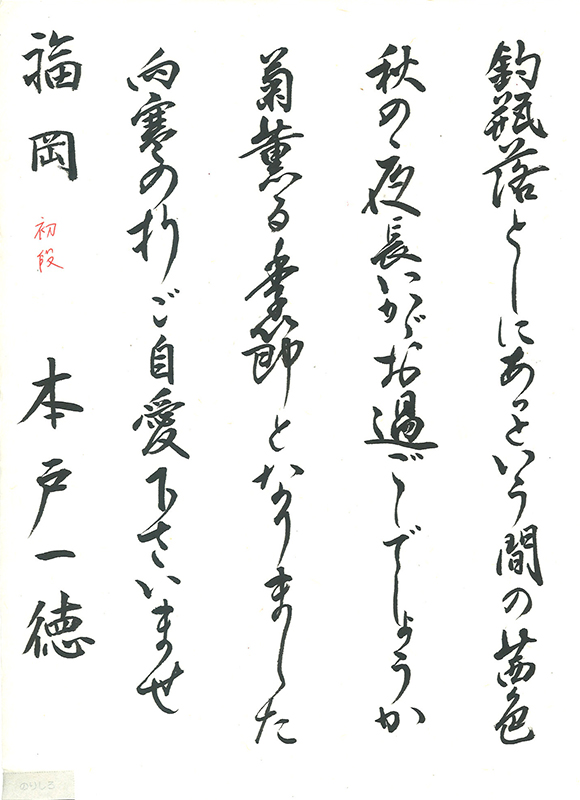 釣瓶落としにあっという間の茜色
秋の夜長いかがお過ごしでしょうか
菊薫る季節となりました
向寒の折ご自愛下さいませ
福岡 初段 本戸一徳
のりしろ